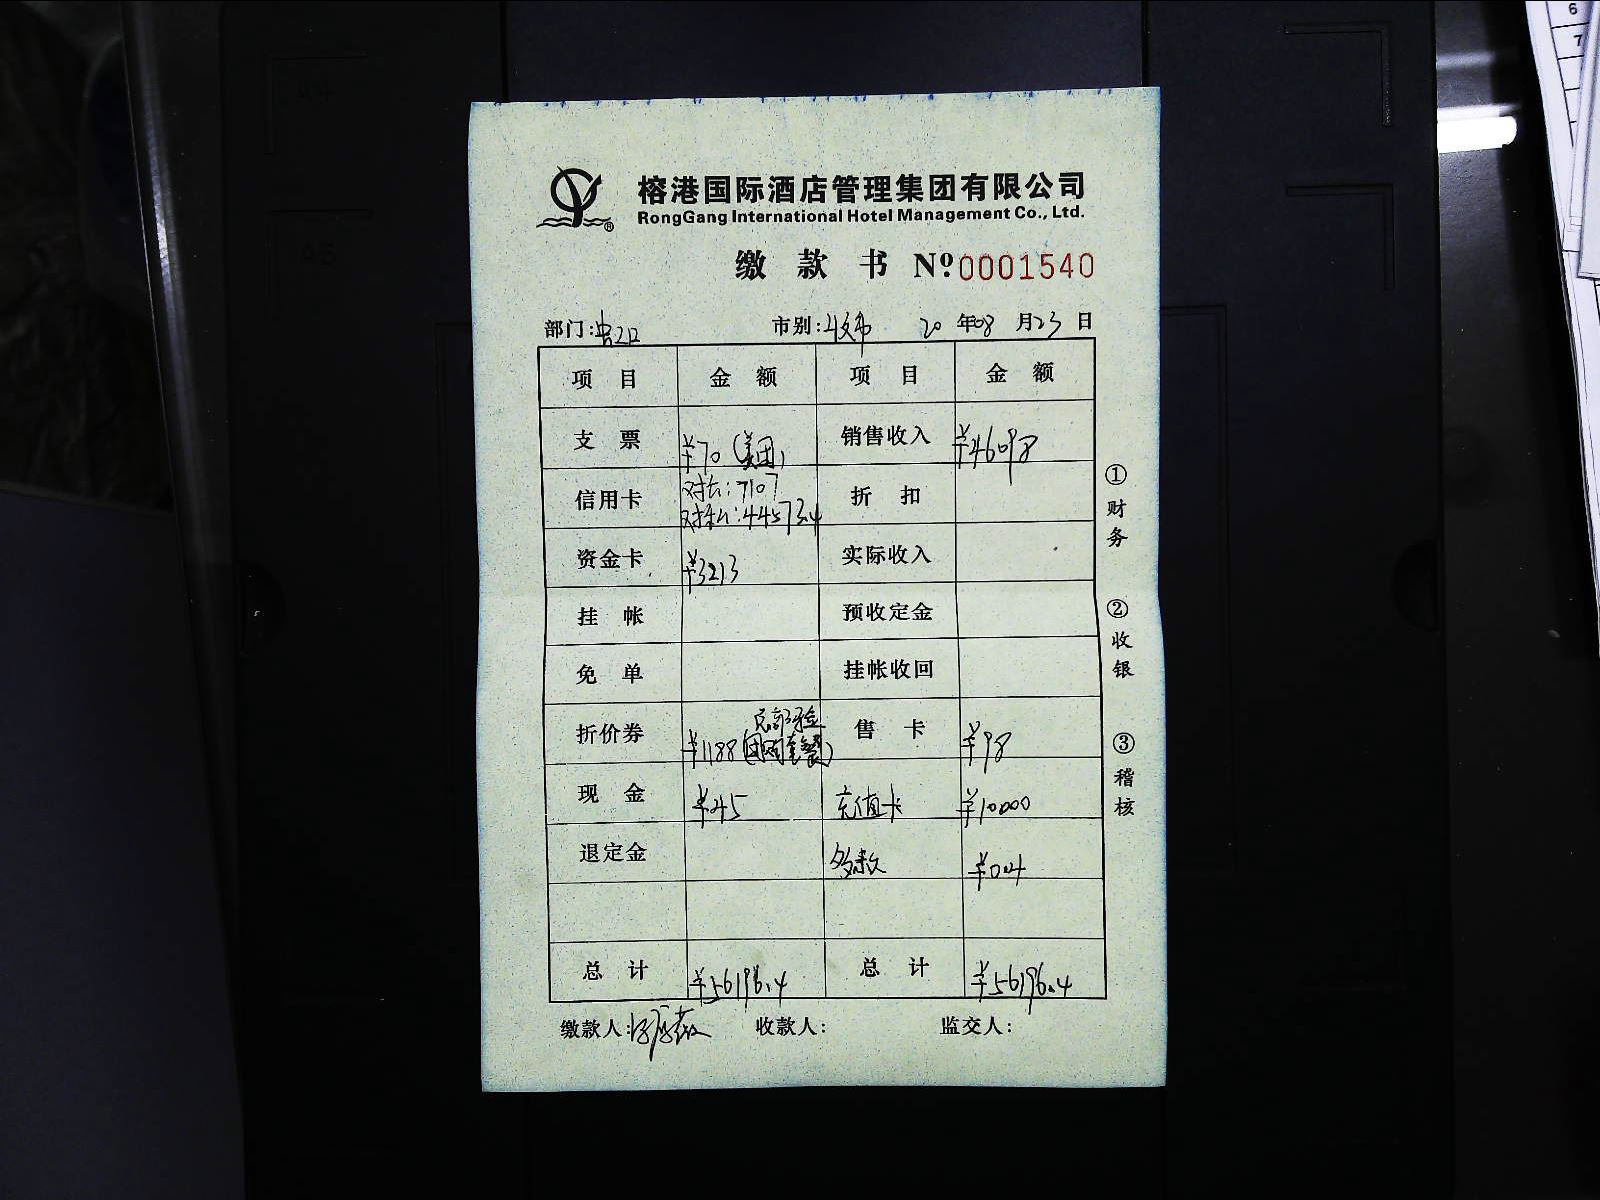 榕港国际酒店管理集团有限公司
RongGang International Hotel Management Co., Ltd.
缴 款 书 Nº 0001540
部门: 市别: 20 年 08 月 23 日
项 目 金 额 项 目 金 额
支 票 ¥70 (美团) 销售收入 ¥46098
信用卡 对长: 7107 对私: 44573.4 折 扣
资金卡 ¥3213 实际收入
挂 帐 预收定金
免 单 挂帐收回
折价券 ¥1188 (团购套餐) 售 卡 ¥98
现 金 ¥45 充值卡 ¥10000
退定金 多款 ¥0.4
总 计 ¥56196.4 总 计 ¥56196.4
缴款人: 收款人: 监交人:
① 财务
② 收银
③ 稽核
6
7